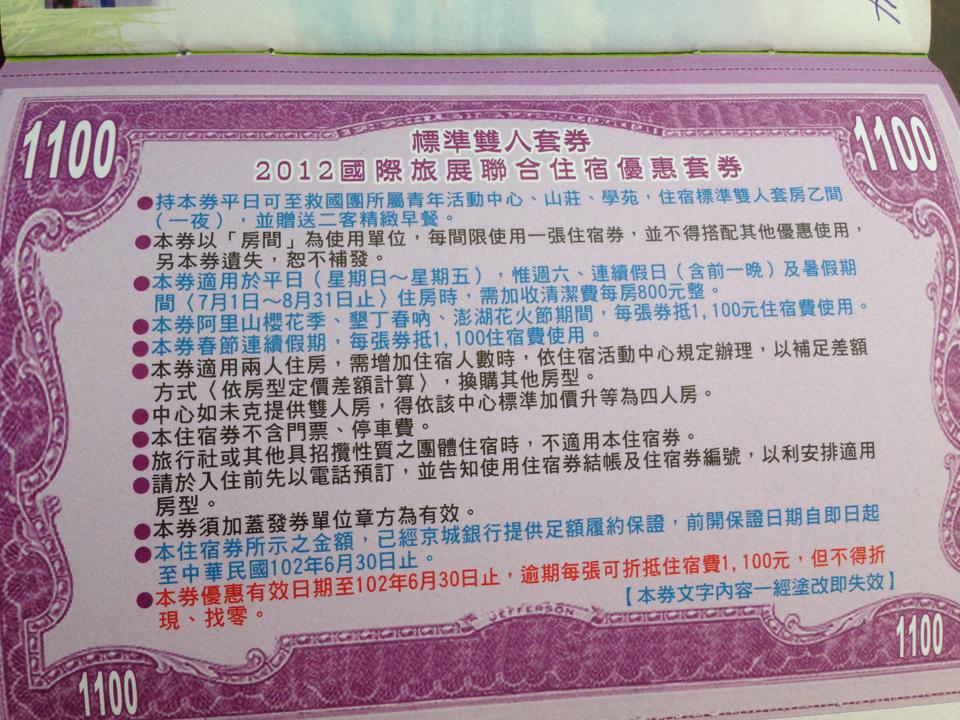 1100
1100
標準雙人套券
2012國際旅展聯合住宿優惠套券
●持本券平日可至救國團所屬青年活動中心、山莊、學苑，住宿標準雙人套房乙間
（一夜），並贈送二客精緻早餐。
●本券以「房間」為使用單位，每間限使用一張住宿券，並不得搭配其他優惠使用，
另本券遺失，恕不補發。
●本券適用於平日（星期日～星期五），惟週六、連續假日（含前一晚）及暑假期
間〈7月1日～8月31日止〉住房時，需加收清潔費每房800元整。
●本券阿里山櫻花季、墾丁春吶、澎湖花火節期間，每張券抵1,100元住宿費使用。
●本券春節連續假期，每張券抵1,100住宿費使用。
●本券適用兩人住房，需增加住宿人數時，依住宿活動中心規定辦理，以補足差額
方式〈依房型定價差額計算〉，換購其他房型。
●中心如未克提供雙人房，得依該中心標準加價升等為四人房。
●本住宿券不含門票、停車費。
●旅行社或其他具招攬性質之團體住宿時，不適用本住宿券。
●請於入住前先以電話預訂，並告知使用住宿券結帳及住宿券編號，以利安排適用
房型。
●本券須加蓋發券單位章方為有效。
●本住宿券所示之金額，已經京城銀行提供足額履約保證，前開保證日期自即日起
至中華民國102年6月30日止。
●本券優惠有效日期至102年6月30日止，逾期每張可折抵住宿費1,100元，但不得折
現、找零。
【本券文字內容一經塗改即失效】
JEFFERSON
1100
1100